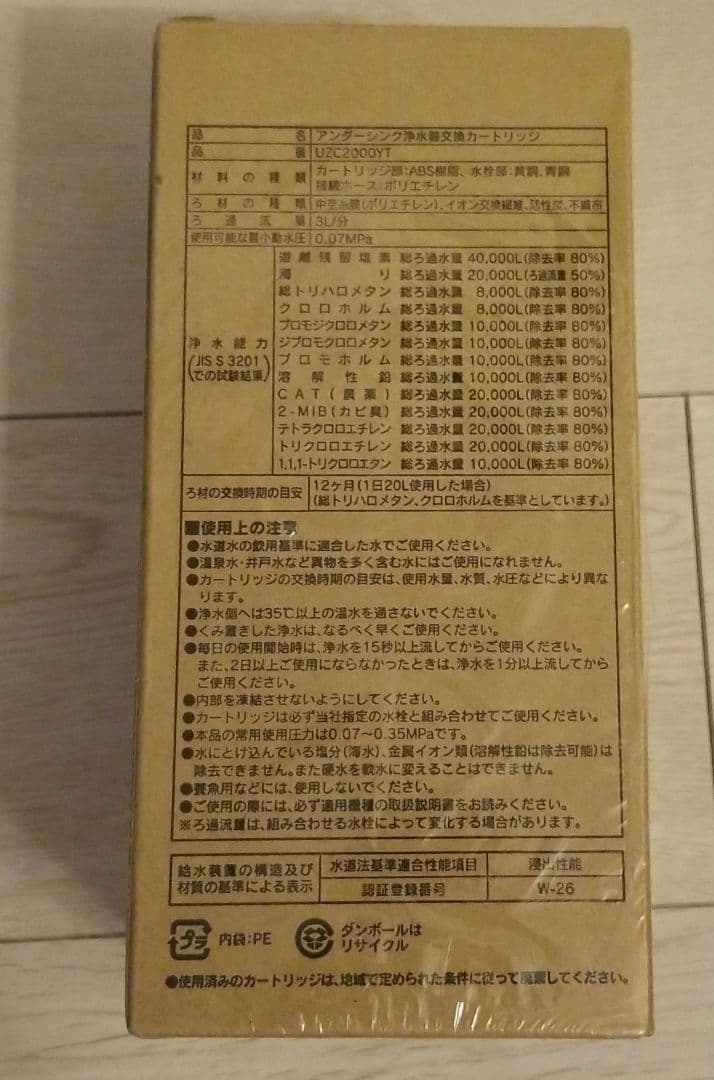 品名 アンダーシンク浄水器交換カートリッジ
品番 UZC2000YT
材料の種類 カートリッジ部:ABS樹脂、水栓部:黄銅、青銅
接続ホース:ポリエチレン
ろ材の種類 中空糸膜(ポリエチレン)、イオン交換繊維、活性炭、不織布
ろ過流量 3L/分
使用可能な最小動水圧 0.07MPa
浄水能力
(JIS S 3201
での試験結果)
遊離残留塩素 総ろ過水量 40,000L(除去率 80%)
濁り 総ろ過水量 20,000L(ろ過流量 50%)
総トリハロメタン 総ろ過水量 8,000L(除去率 80%)
クロロホルム 総ろ過水量 8,000L(除去率 80%)
ブロモジクロロメタン 総ろ過水量 10,000L(除去率 80%)
ジブロモクロロメタン 総ろ過水量 10,000L(除去率 80%)
ブロモホルム 総ろ過水量 10,000L(除去率 80%)
溶解性鉛 総ろ過水量 10,000L(除去率 80%)
CAT(農薬) 総ろ過水量 20,000L(除去率 80%)
2-MIB(カビ臭) 総ろ過水量 20,000L(除去率 80%)
テトラクロロエチレン 総ろ過水量 20,000L(除去率 80%)
トリクロロエチレン 総ろ過水量 20,000L(除去率 80%)
1,1,1-トリクロロエタン 総ろ過水量 10,000L(除去率 80%)
ろ材の交換時期の目安 12ヶ月(1日20L使用した場合)
(総トリハロメタン、クロロホルムを基準としています。)
■使用上の注意
●水道水の飲用基準に適合した水でご使用ください。
●温泉水・井戸水など異物を多く含む水にはご使用になれません。
●カートリッジの交換時期の目安は、使用水量、水質、水圧などにより異な
ります。
●浄水側へは35℃以上の温水を通さないでください。
●くみ置きした浄水は、なるべく早くご使用ください。
●毎日の使用開始時は、浄水を15秒以上流してからご使用ください。
また、2日以上ご使用にならなかったときは、浄水を1分以上流してから
ご使用ください。
●内部を凍結させないようにしてください。
●カートリッジは必ず当社指定の水栓と組み合わせてご使用ください。
●本品の常用使用圧力は0.07~0.35MPaです。
●水にとけ込んでいる塩分(海水)、金属イオン類(溶解性鉛は除去可能)は
除去できません。また硬水を軟水に変えることはできません。
●養魚用などには、使用しないでください。
●ご使用の際には、必ず適用機種の取扱説明書をお読みください。
※ろ過流量は、組み合わせる水栓によって変化する場合があります。
給水装置の構造及び
材質の基準による表示
水道法基準適合性能項目 浸出性能
認証登録番号 W-26
プラ 内袋:PE
ダンボールは
リサイクル
●使用済みのカートリッジは、地域で定められた条件に従って廃棄してください。